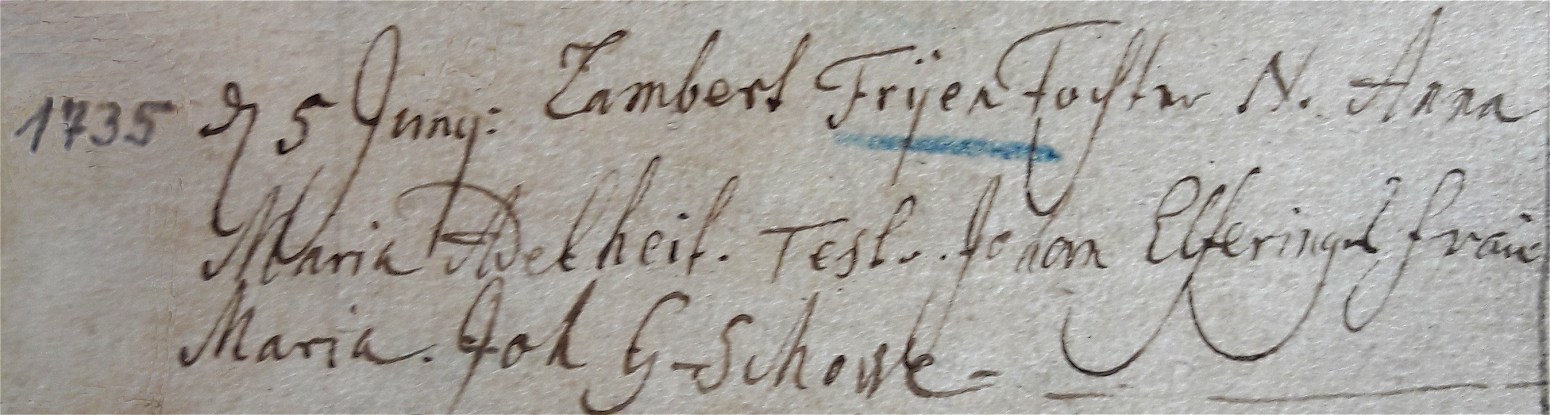 1735 d 5 Juny: Lambert Frijen Tochter N. Anna
Maria Adelheit. Test.. Johan Elferings frau
Maria. Joh G-Schowe-